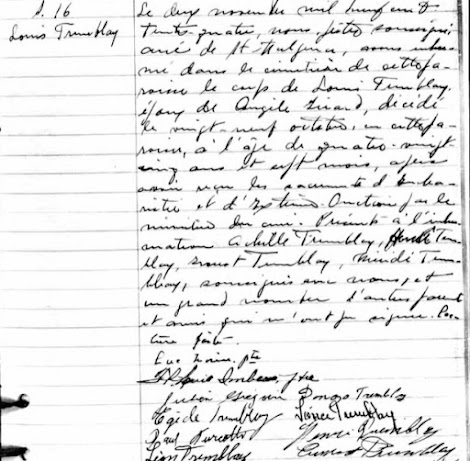 S. 16
Louis Tremblay
Le deux novembre mil neuf cent
trente-quatre, nous, prêtre soussigné,
curé de St Fulgence, avons inhu-
mé dans le cimetière de cette pa-
roisse le corps de Louis Tremblay,
époux de Angèle Girard, décédé
le vingt-neuf octobre, en cette pa-
roisse, à l'âge de quatre-vingt-
cinq ans et sept mois, après
avoir reçu les sacrements d'Eucha-
ristie et d'Extrême-Onction par le
ministère du curé. Présents à l'inhu-
mation Achille Tremblay, Trem-
blay, Ernest Tremblay, Trem-
blay, soussignés avec nous, et
un grand nombre d'autres parents
et amis qui n'ont pu signer. Lec-
ture faite.
ptre
Ls ptre
Tremblay
Egide Tremblay Tremblay
Paul Turcotte Tremblay
Léon Tremblay Ernest Tremblay